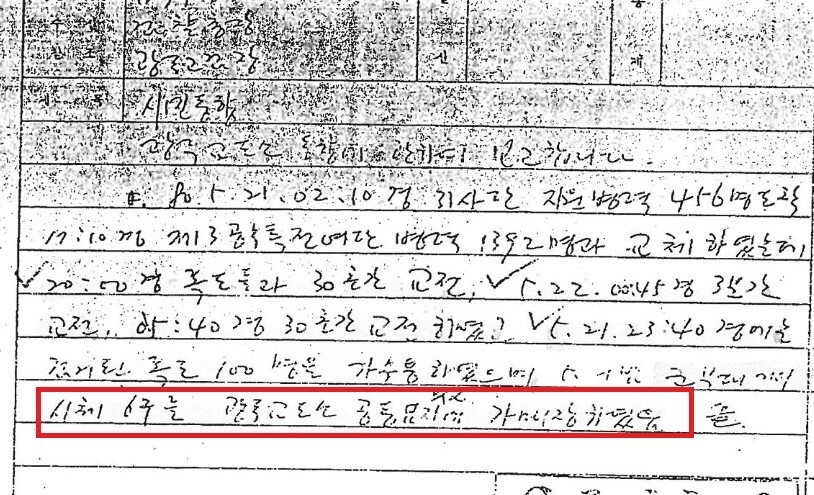 검찰총장
제목
광주교도소 동향에 관하여 보고합니다.
80. 5. 21. 02:10경 31사단 지원병력 456명 도착
17:10경 제3공수특전여단 병력 1392명과 교체하였는데
20:00경 폭도들과 30초간 교전, 5.22. 00:45경 3분간
교전, 05:40경 30초간 교전하였고 5.21. 23:40경에는
폭도 100명을 가수용하였으며
시체 6구를 광주교도소 공동묘지에 가매장하였음 끝.